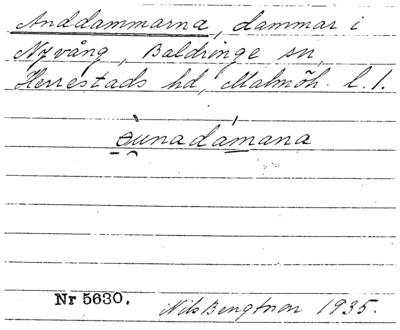 Anddammarna, dammar i
Nyvång, Baldringe sn,
Herrestads hd, Malmöh. l.
æunadámana
Nr 5630. Nils Bengtson 1935.